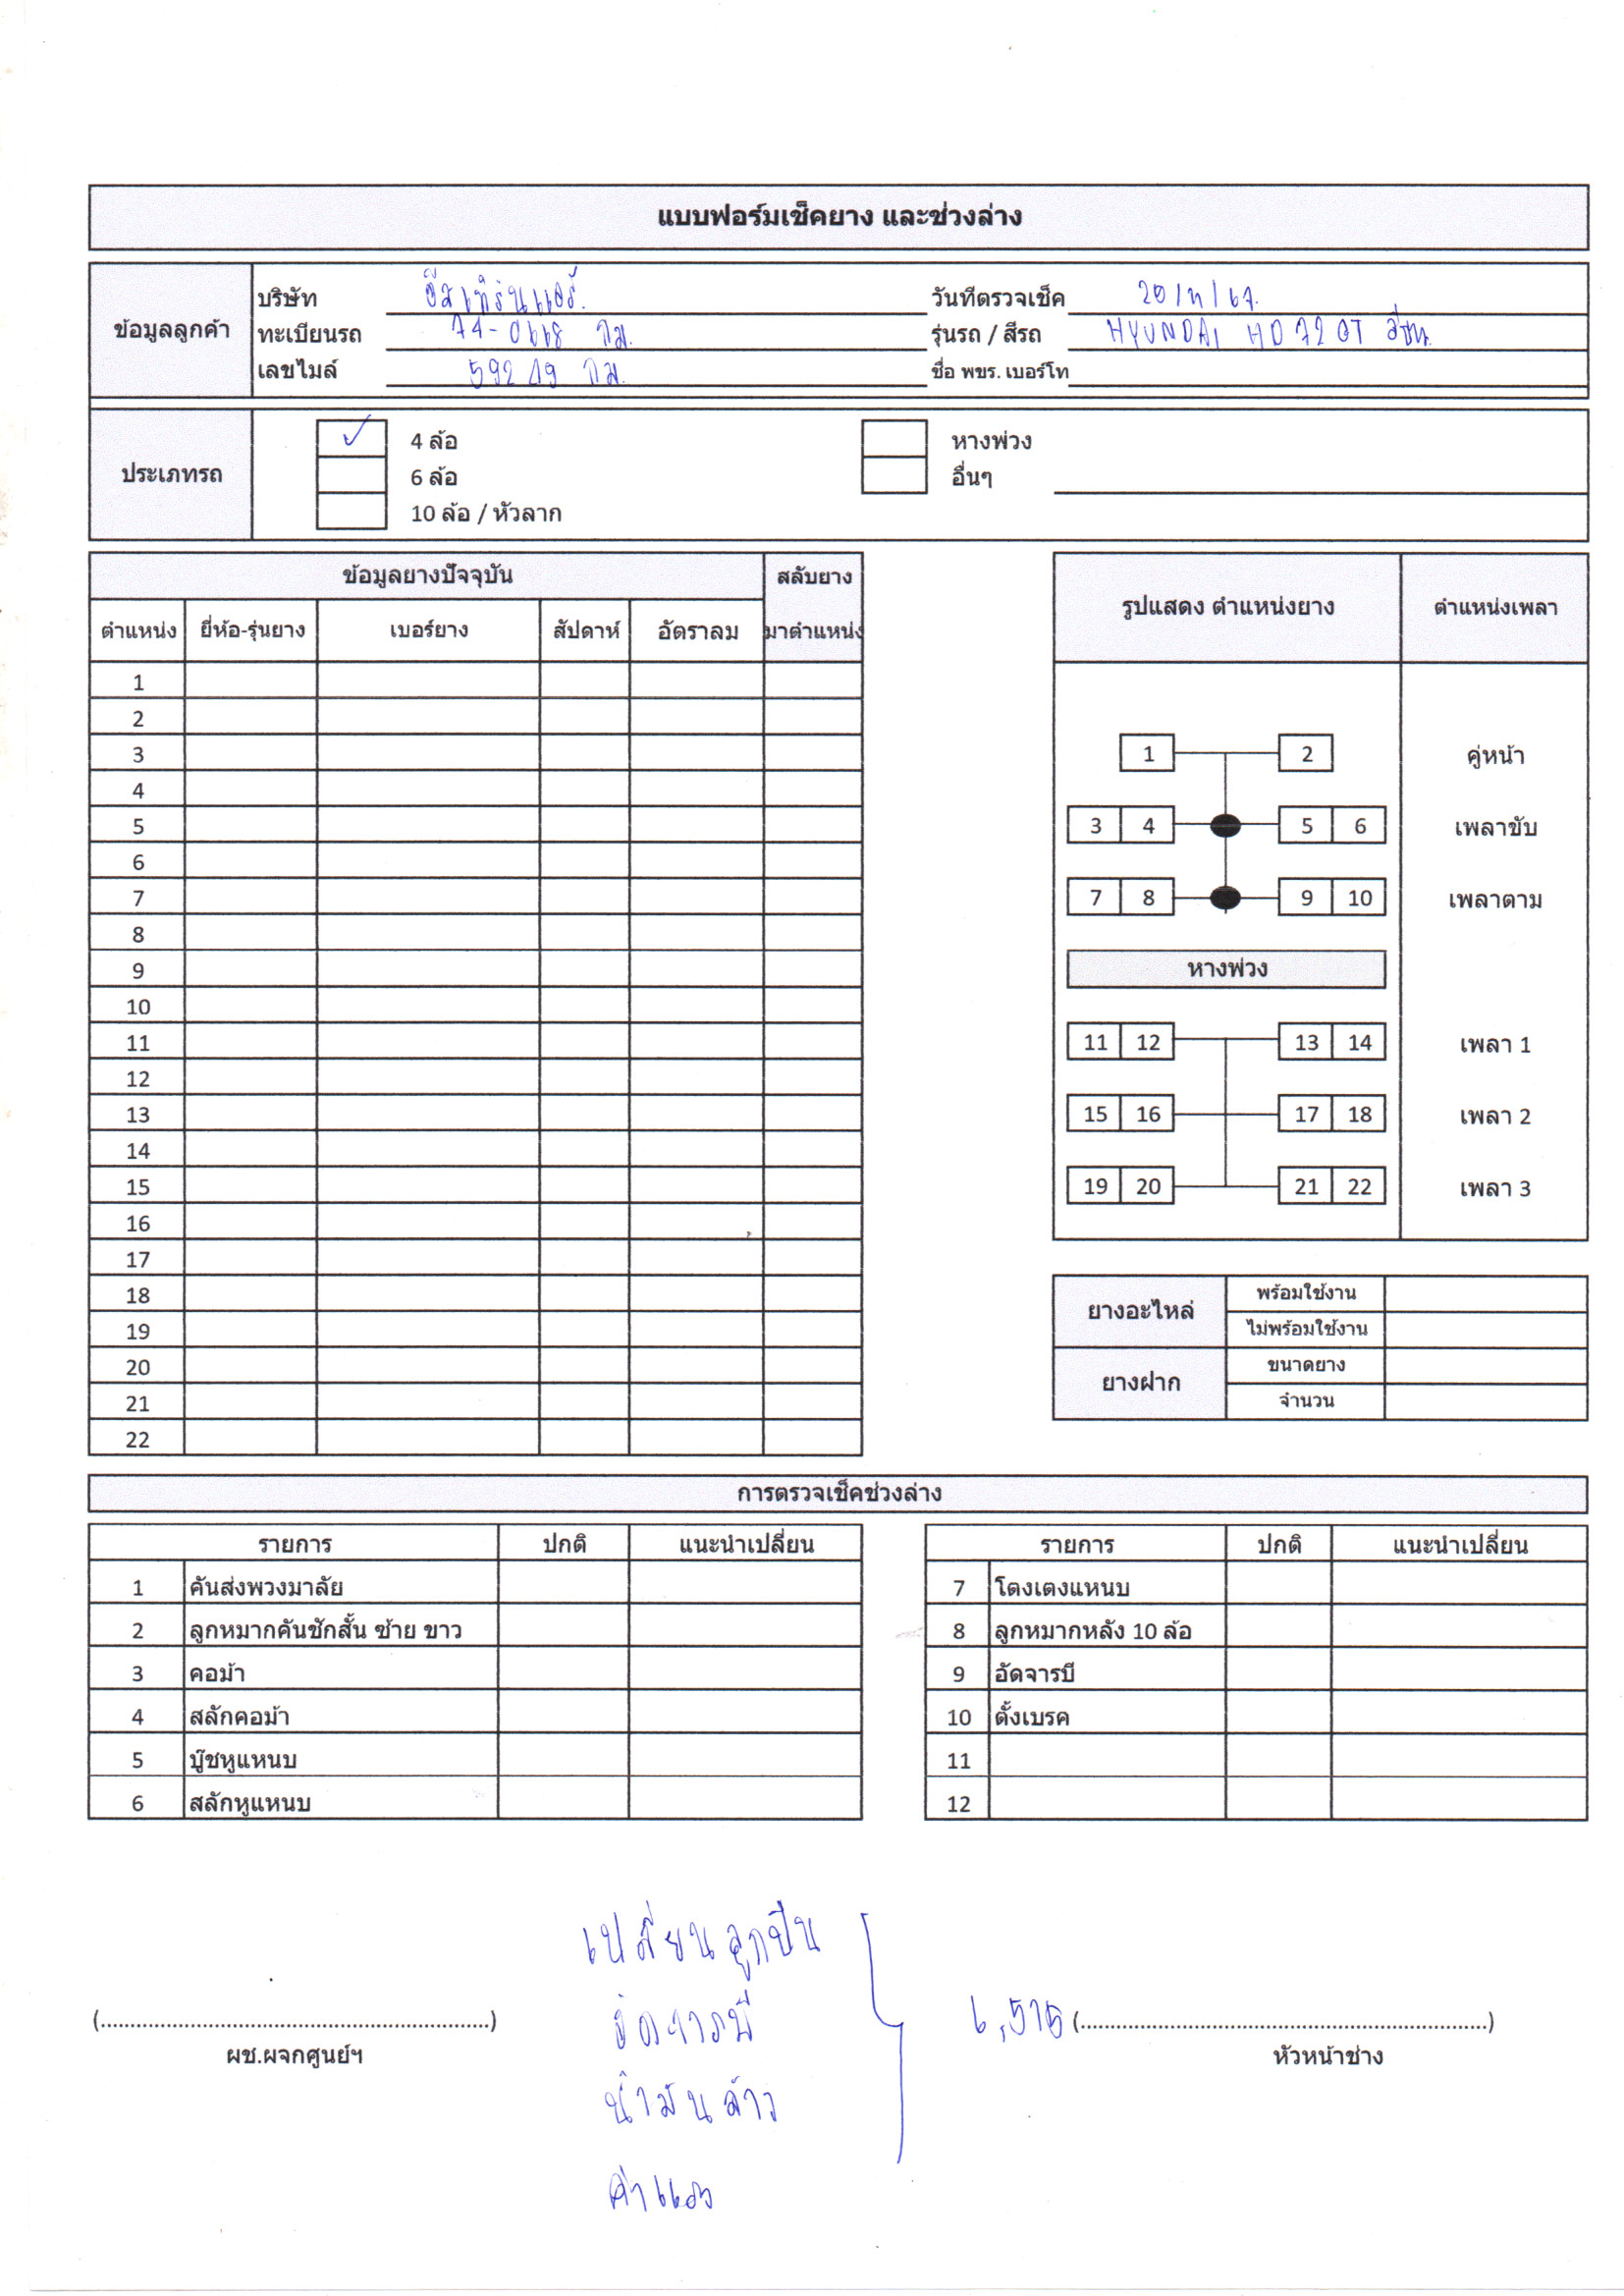 แบบฟอร์มเช็คยาง และช่วงล่าง
ข้อมูลลูกค้า
บริษัท อีสเทิร์นแอร์. วันที่ตรวจเช็ค
ทะเบียนรถ รุ่นรถ / สีรถ HYUNDAI HD 72 GT
เลขไมล์ กม. ชื่อ พขร. เบอร์โท
ประเภทรถ
✓ 4 ล้อ หางพ่วง
6 ล้อ อื่นๆ
10 ล้อ / หัวลาก
ข้อมูลยางปัจจุบัน สลับยาง
ตำแหน่ง ยี่ห้อ-รุ่นยาง เบอร์ยาง สัปดาห์ อัตราลม มาตำแหน่ง
1
2
3
4
5
6
7
8
9
10
11
12
13
14
15
16
17
18
19
20
21
22
รูปแสดง ตำแหน่งยาง ตำแหน่งเพลา
1 2 คู่หน้า
3 4 5 6 เพลาขับ
7 8 9 10 เพลาตาม
หางพ่วง
11 12 13 14 เพลา 1
15 16 17 18 เพลา 2
19 20 21 22 เพลา 3
ยางอะไหล่ พร้อมใช้งาน
ไม่พร้อมใช้งาน
ยางฝาก ขนาดยาง
จำนวน
การตรวจเช็คช่วงล่าง
รายการ ปกติ แนะนำเปลี่ยน
1 คันส่งพวงมาลัย
2 ลูกหมากคันชักสั้น ซ้าย ขาว
3 คอม้า
4 สลักคอม้า
5 บู๊ชหูแหนบ
6 สลักหูแหนบ
รายการ ปกติ แนะนำเปลี่ยน
7 โตงเตงแหนบ
8 ลูกหมากหลัง 10 ล้อ
9 อัดจารบี
10 ตั้งเบรค
11
12
เปลี่ยนลูกปืน
อัดจารบี
น้ำมันล้าง
ค่าแรง
(....................................................................)
ผช.ผจกศูนย์ฯ
(....................................................................)
หัวหน้าช่าง